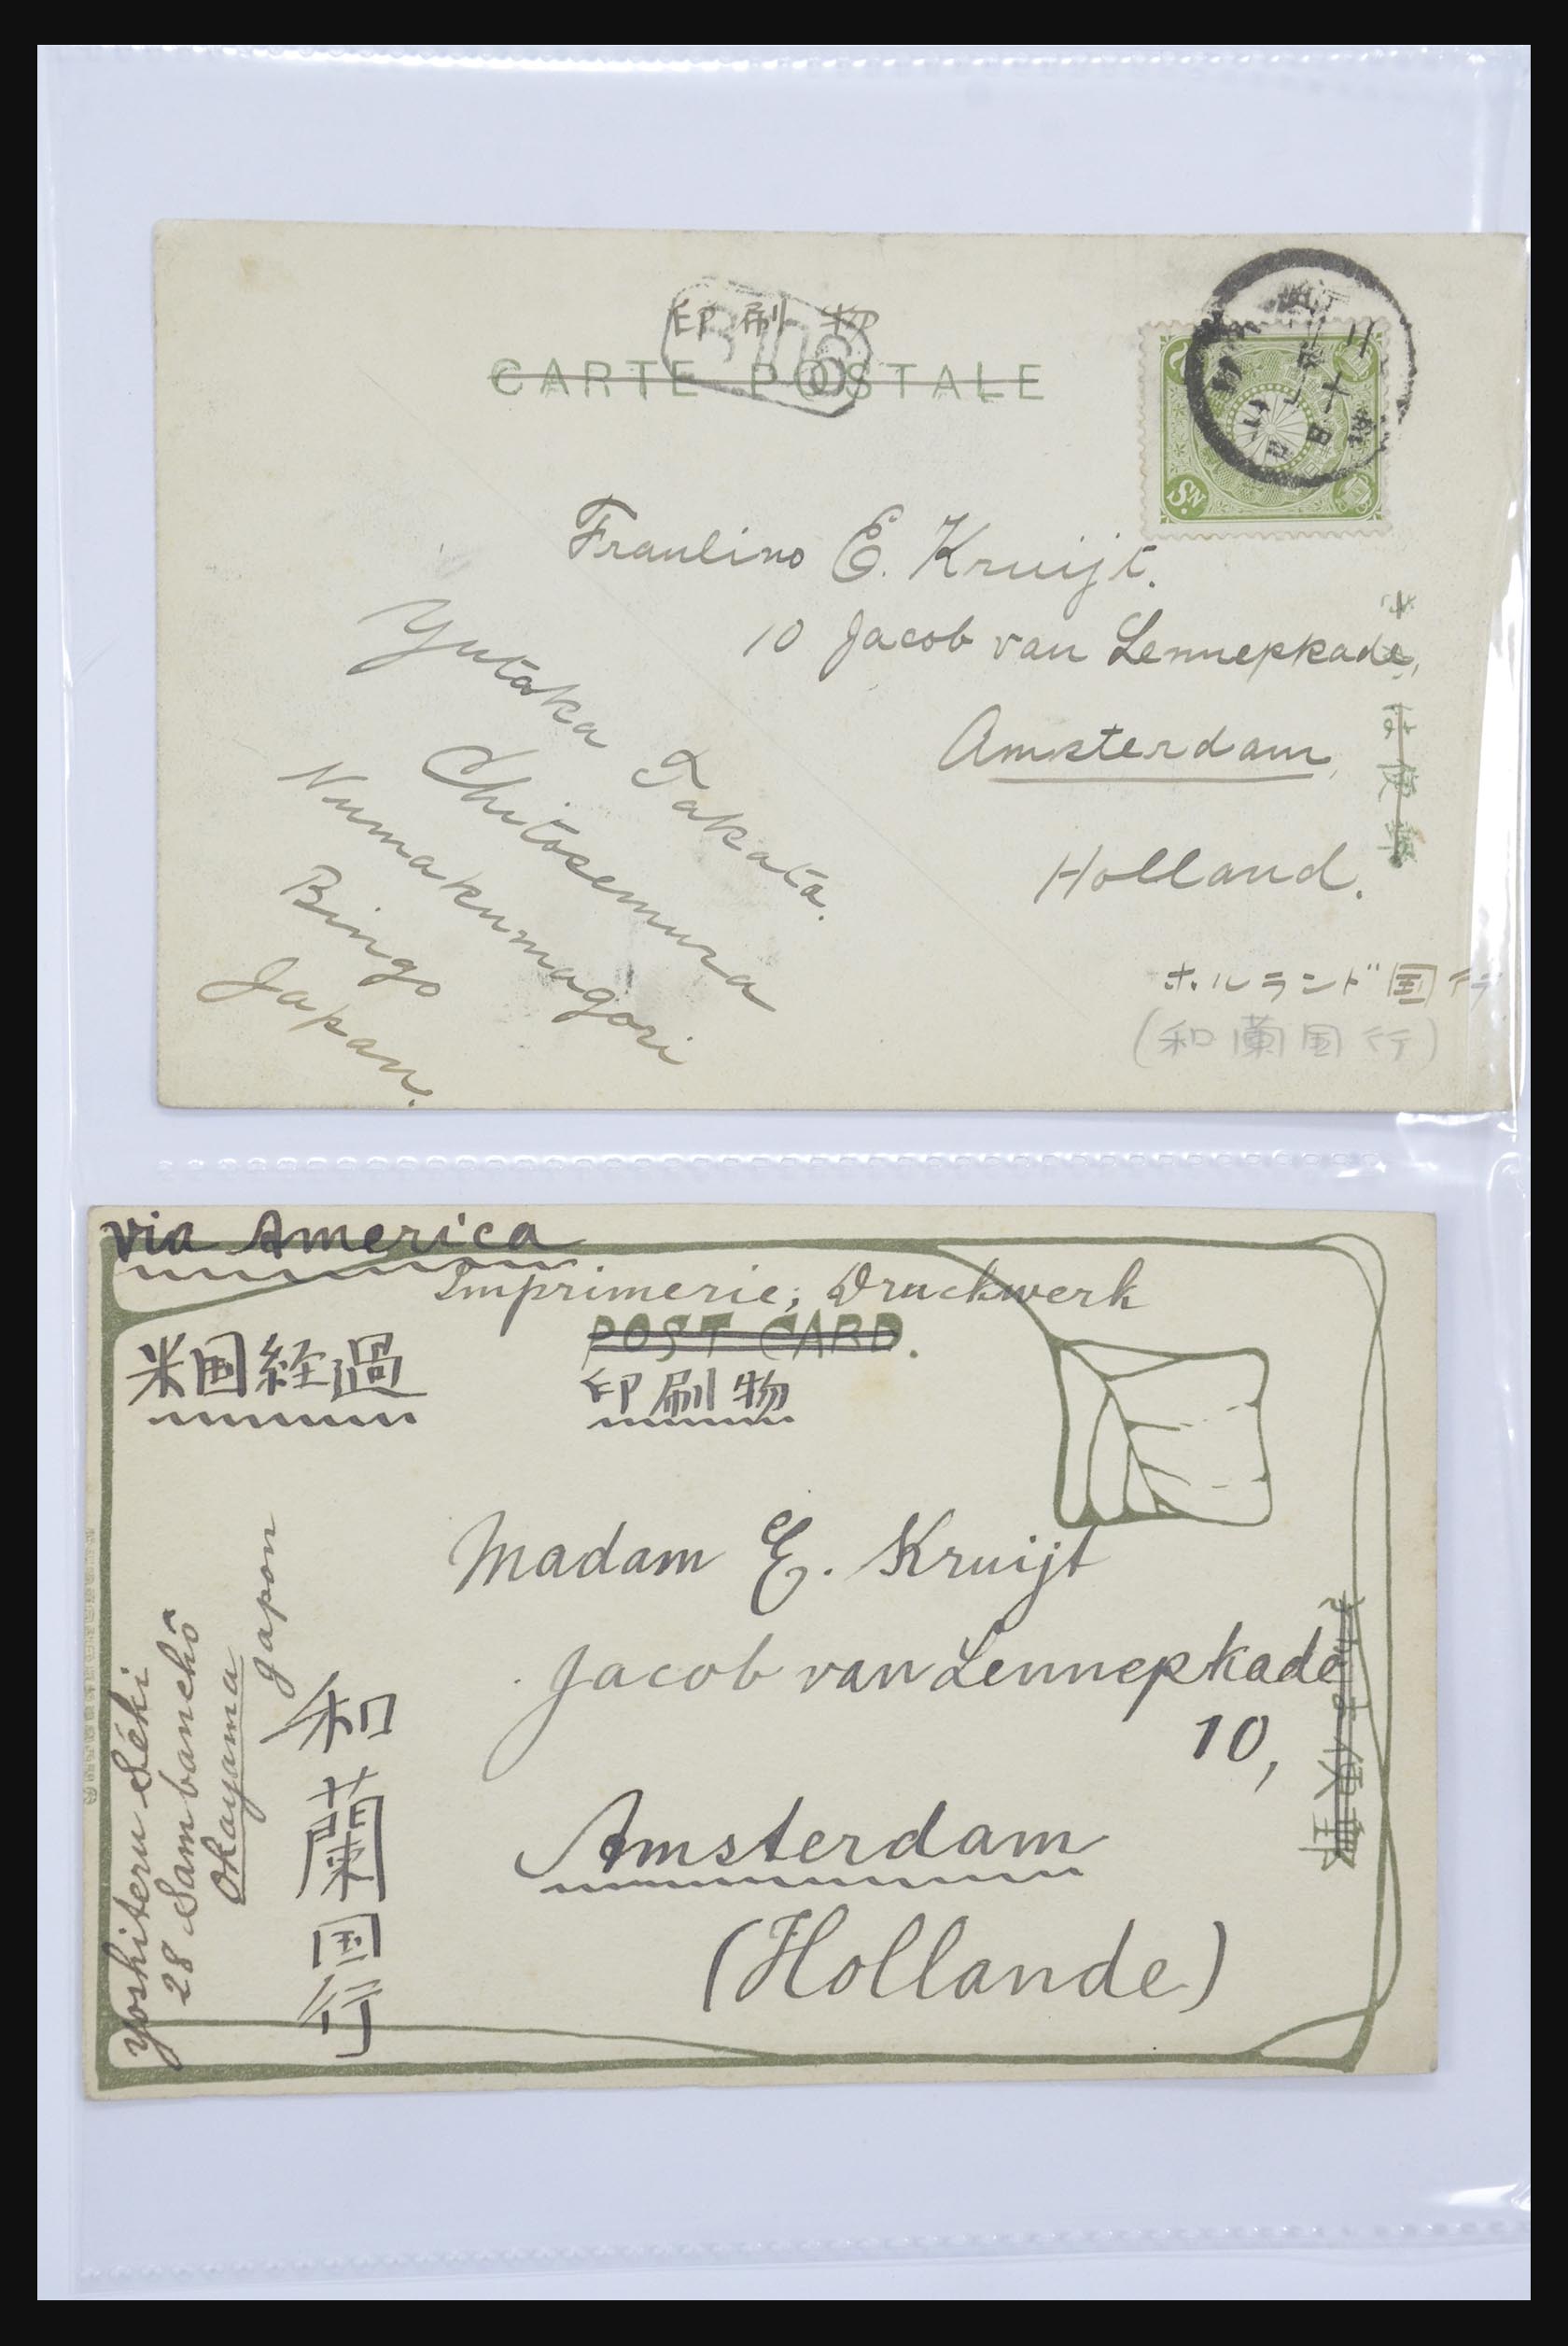 印刷物
CARTE POSTALE
Fraulino E. Kruijt.
10 Jacob van Lennepkade,
Amsterdam,
Holland.
Yutaka Takata.
Chitosemura
Numakumagori
Bingo
Japan.
ホルランド国行
(和蘭国行)
via America
Imprimerie; Druckwerk
POST CARD.
米国経過
印刷物
Madam E. Kruijt
Jacob van Lennepkade
10,
Amsterdam
(Hollande)
和蘭国行
Yoshiteru Séki
28 Sambanchô
Okayama
Japon